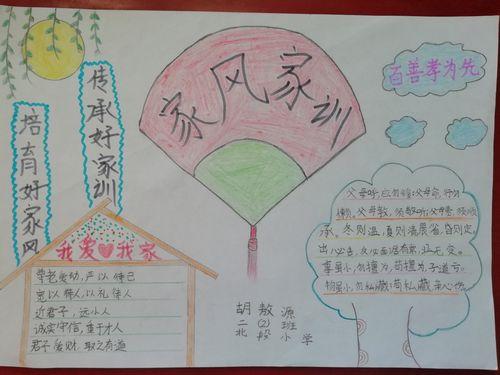 家风家训
百善孝为先
传承好家训
培育好家风
我爱我家
尊老爱幼,严以律己
宽以待人,以礼待人
近君子,远小人
诚实守信,重于才人
君子爱财,取之有道
父母呼,应勿缓;父母命,行勿
懒。父母教,须敬听;父母责,须顺
承。冬则温,夏则凊。晨省,昏则定。
出必告,反必面。居有常,业无变。
事虽小,勿擅为;苟擅为,子道亏。
物虽小,勿私藏;苟私藏,亲心伤。
胡敖源
二(2)班
北段小学